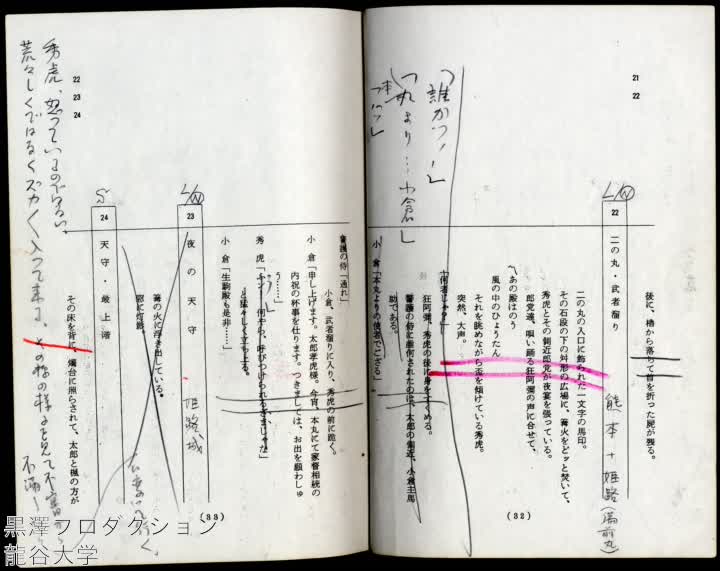 21
22
後に、櫓から落ちて首を折った屍が残る。
L/N
22 二の丸・武者溜り
熊本+姫路(備前丸)
二の丸の入口に飾られた一文字の馬印。
その石段の下の舛形の広場に、篝火をどッと焚いて、
秀虎とその側近郎党が夜宴を張っている。
郎党達、唄い踊る狂阿彌の声に合せて、
〽あの殿はのう
風の中のひょうたん
それを眺めながら盃を傾けている秀虎。
突然、大声。
「何者じゃ?」
狂阿彌、秀虎の後に身をすくめる。
警護の侍に誰何されたのは、太郎の側近、小倉主馬
助である。
小倉「本丸よりの使者でござる」
「誰かッ!」
「本丸より…小倉」
(32)
22
23
24
警護の侍「通れ」
小倉、武者溜りに入り、秀虎の前に跪く。
小倉「申し上げます。太郎孝虎様。今宵、本丸にて家督相続の
内祝の杯事を仕ります。つきましては、お出を願わしゅ
う……」
秀虎「ふン!何ぞや、呼びつけられるざまじゃな」
小倉「生駒殿も是非……」
猛々しく立ち上る。
L/N
23 夜の天守
姫路城
篝の火に浮き出している。
窓に灯影。
S
24 天守・最上階
その床を背に、燭台に照らされて、太郎と楓の方が
秀虎、怒っているのではない
荒々しくではなくズカズカ入って来る、その格の様子を見て不審
不満
(33)
黒澤プロダクション
龍谷大学